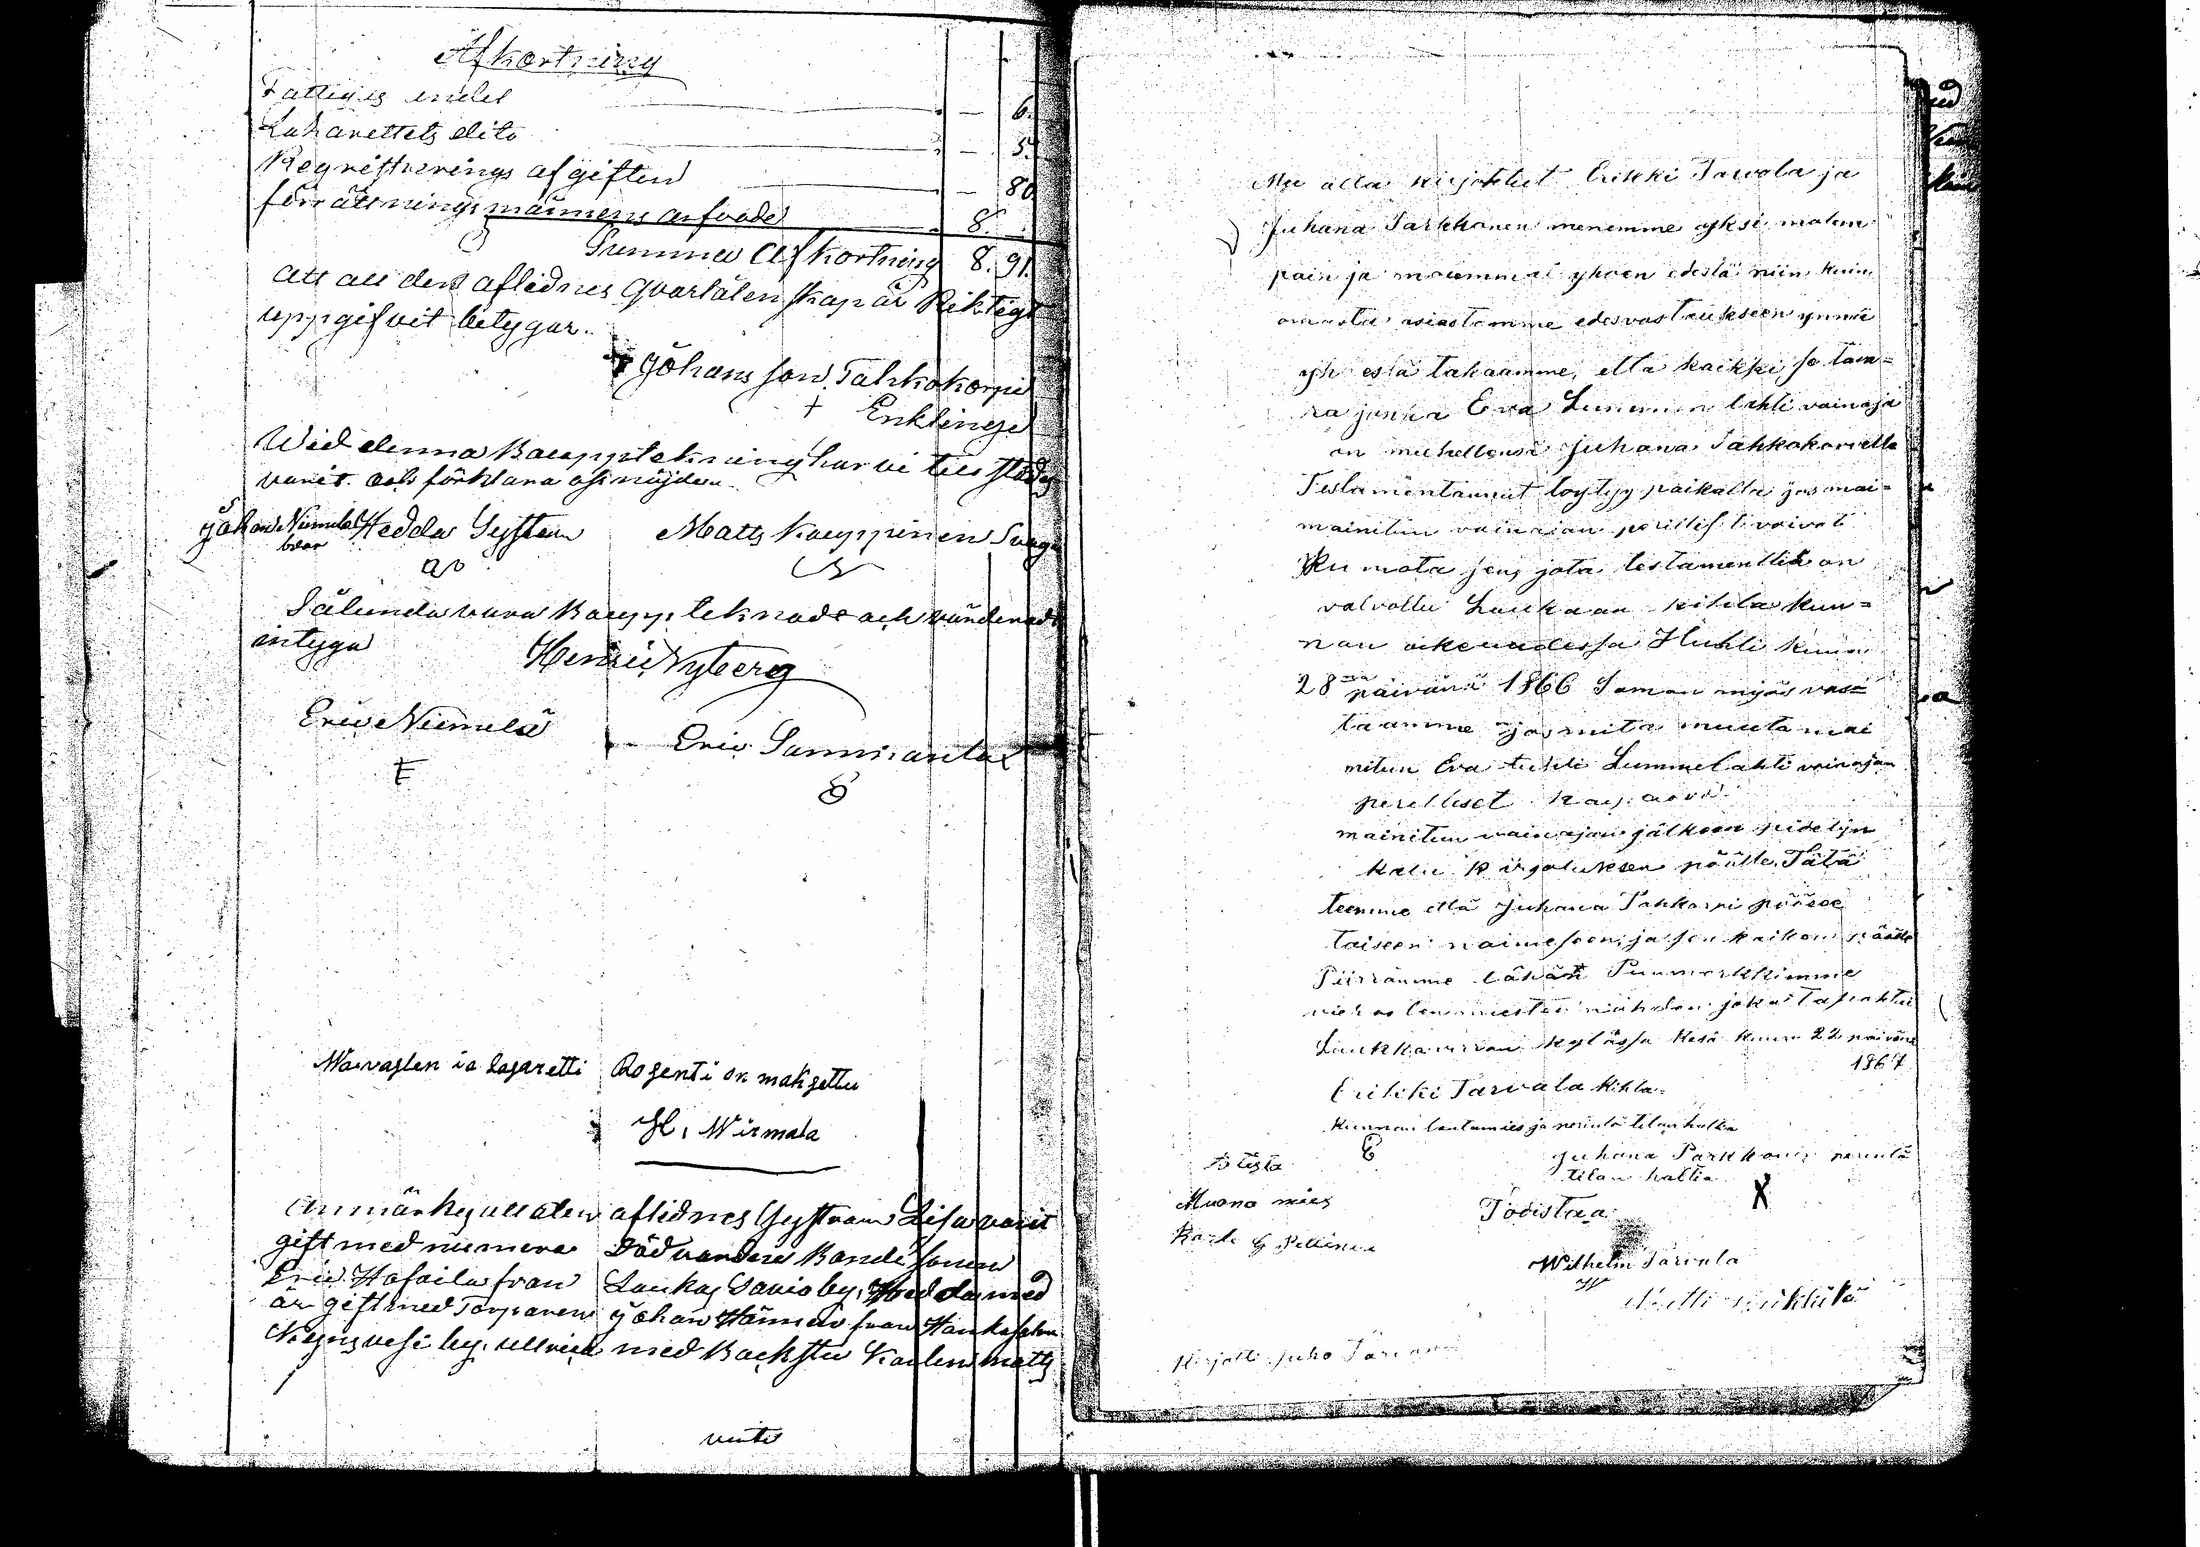 Afkortning
Fattigis andel — 6.
Laharettets dito — 5.
Regristrerings afgiften — 80
förrättnings männens arfvode 8.
Summa Afkortning 8. 91.
att all dens aflednes qvarlåtenskap är Riktigt
uppgifvit betygar.
Johansson Tahkokorpi
+ Enklinge
Wid denna Baupptekning har vi tillstädes
varit och förklara oss nöjden
Johan Niemelä Hedda Systern Matts Kauppinen Svåger
Sålunda vara Baupptecknade och värderade
intyga
Henric Nyberg
Eric Niemelä
Eric Sammanta
Waivasten ia lasaretti Rosenti on maksettu
H. Wirmala
Anmärkes att den aflidnes Systrarn Lisa varit
gift med numera Död vordne Bonde Sonen
Eric Hasaila från Laukas Savio by, Hedda med
är gift med Torparen Johan Hännine från Hankasalmi
Neynsvesi by. Ullrica med Backstu Karlen Matts
vente
Me alla kirjoitetut Erikki Tarvala ja
Juhana Parkkonen menemme yksi molem
pain ja molemmat yhden edestä niin kuin
omasta asiastamme edesvastaukseen ynnä
yhdessä takaamme, että kaikki se tava=
ra jonka Eva Lummelahti vainaja
on miehellensä Juhana Tahkokorvella
Testamentannut löytyy paikalla jos mai=
mainitun vainajan perilliset voivat
Ku mota sen, jota testamenttia on
valvottu Laukaan kihla kun=
nan oikeudessa Huhti kuun
28 päivänä 1866 Saman myös vas=
taamme jos mitä muuta mai
nitun Eva tuhti Lummelahti vainajan
perilliset
mainitun vainajan jälkeen pidetyn
kalu kirjoituksen päälle. Tätä
teemme että Juhana Tahkorpi pääsee
toiseen naimiseen, ja sen kaiken päälle
Piirrämme tähän Puumerkkimme
vierasten miesten nähden joka Tapahtui
Laukkavirran kylässä Kesä kuun 22 päivänä
1867
Erikki Tarvala kihla=
kunnan lautamies ja perintö tilan haltia
Juhana Parkkonen perintö
tilan haltia
Muona mies
Kaale G Pellinen
Todistaa:
Wilhelm Tarvala
Matti
Kirjotti Juho Tarvanen